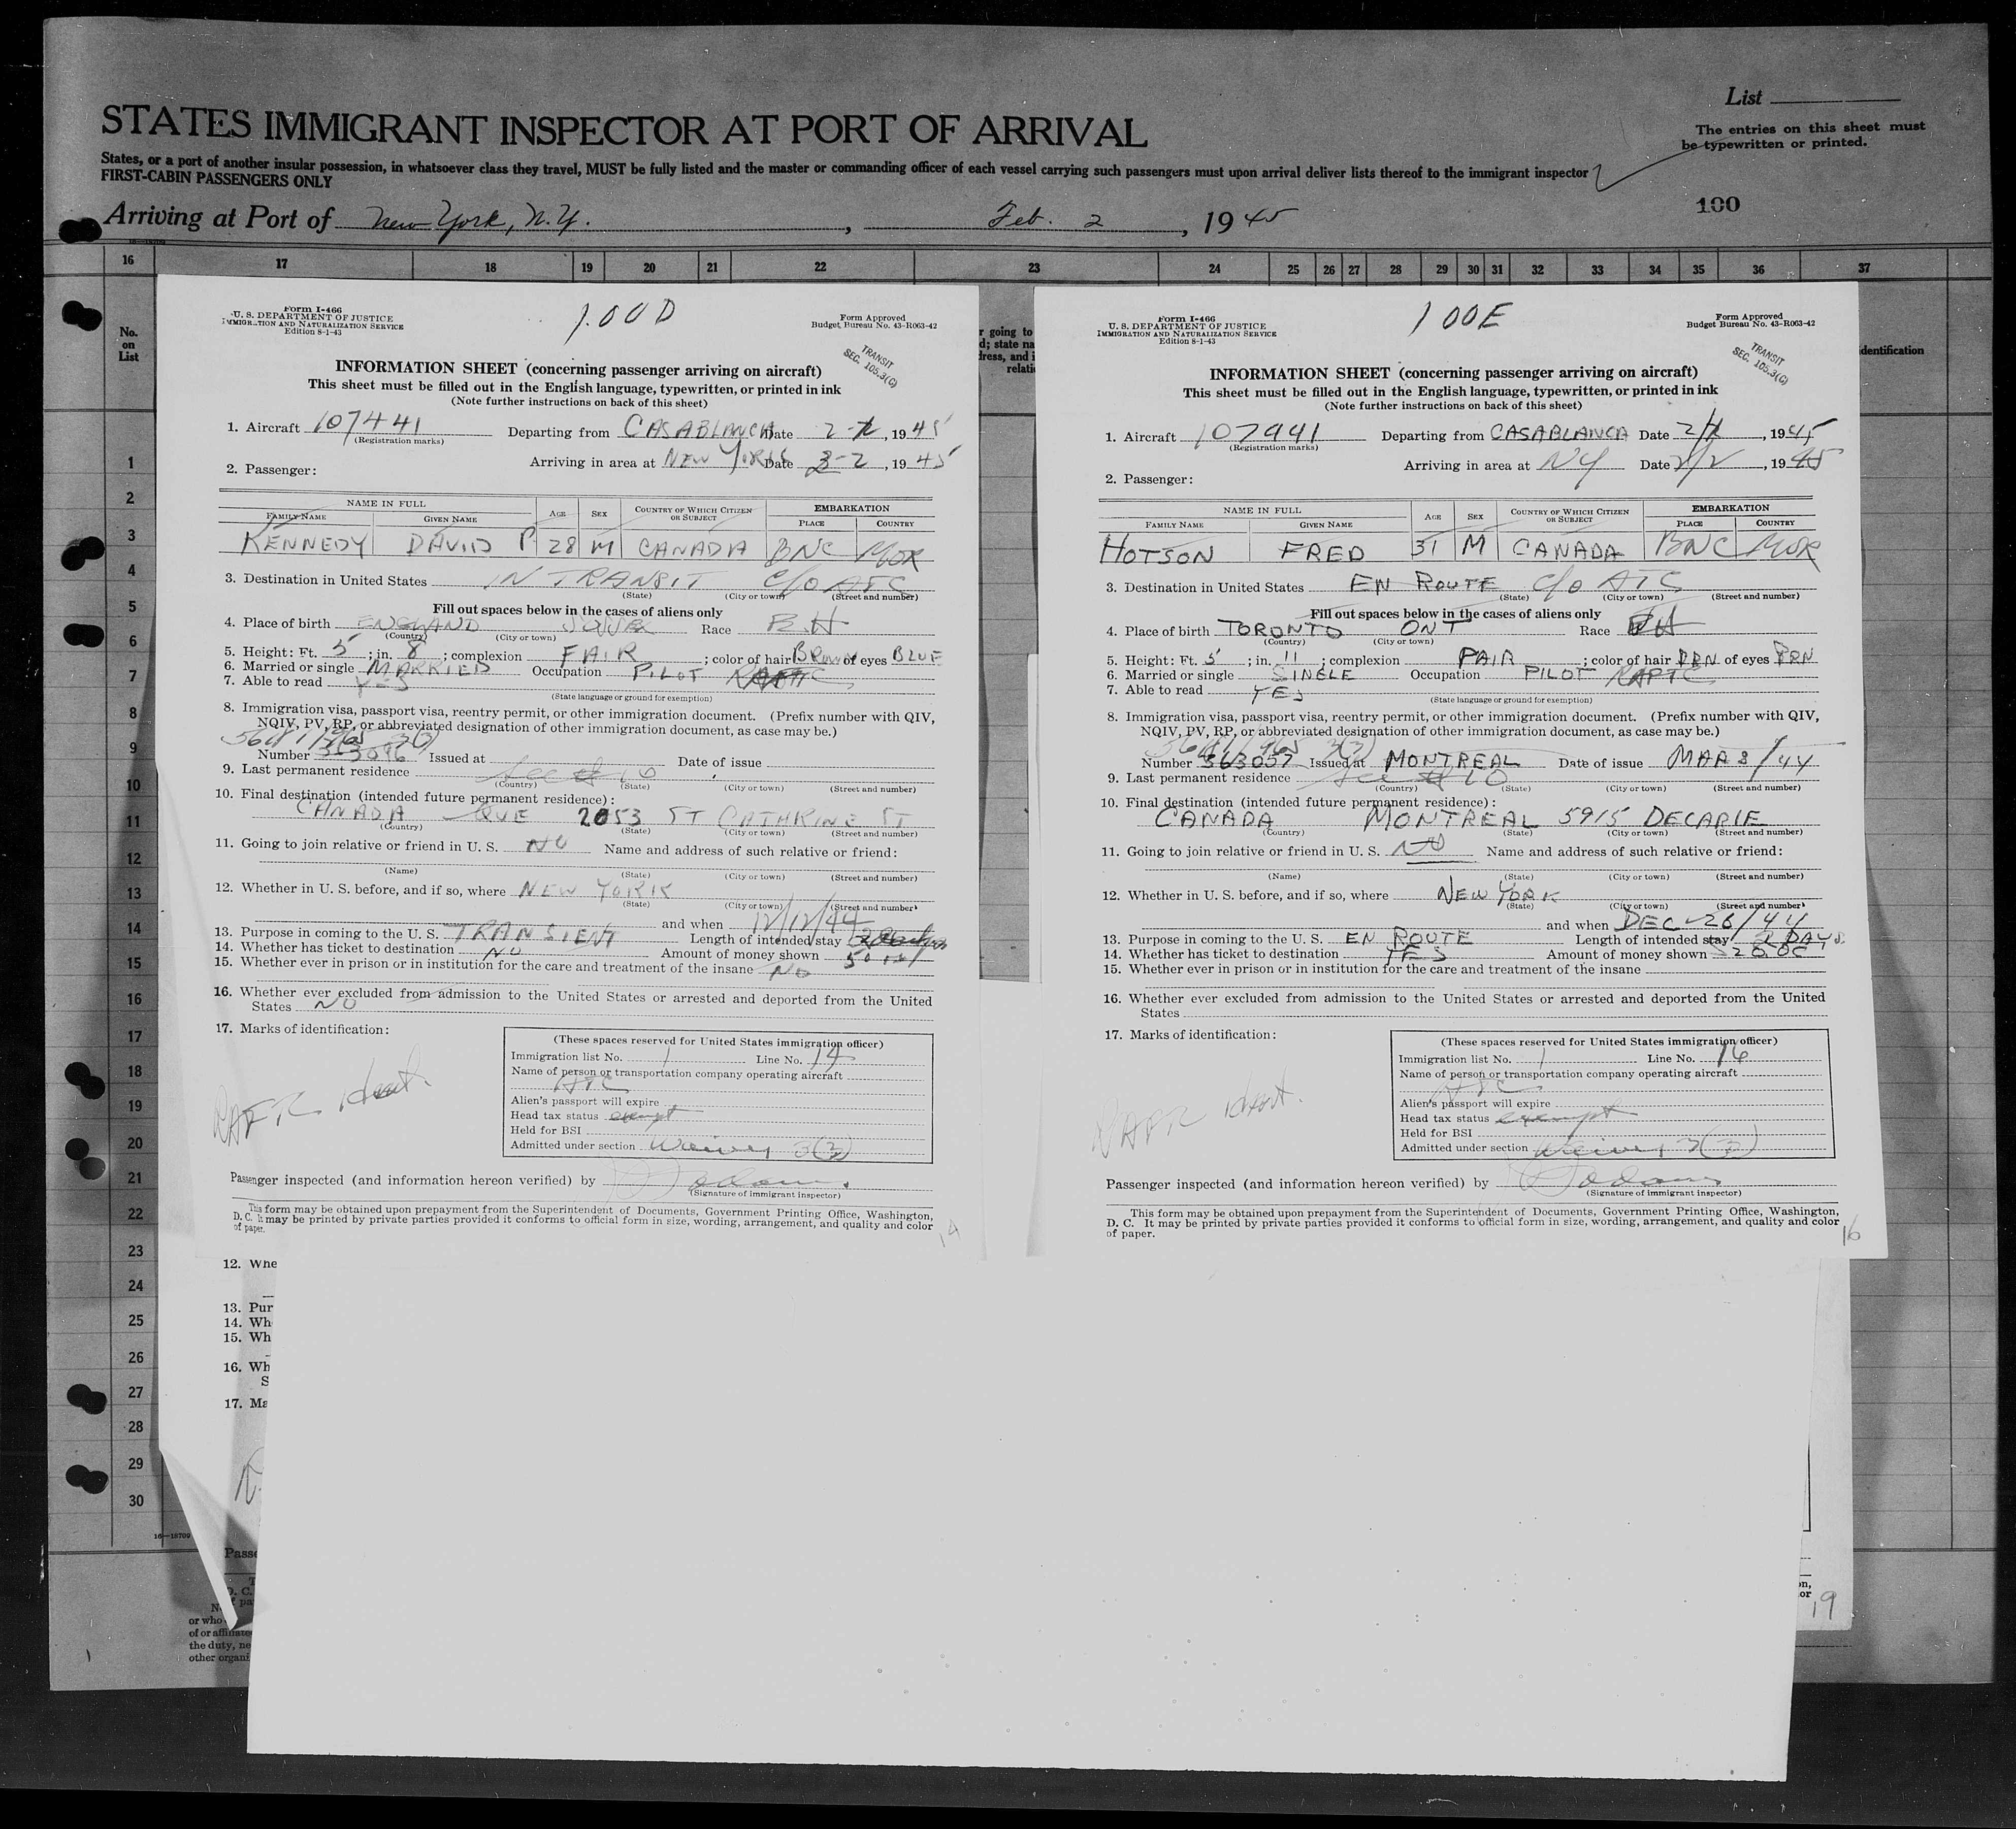 List
STATES IMMIGRANT INSPECTOR AT PORT OF ARRIVAL
The entries on this sheet must
be typewritten or printed.
States, or a port of another insular possession, in whatsoever class they travel, MUST be fully listed and the master or commanding officer of each vessel carrying such passengers must upon arrival deliver lists thereof to the immigrant inspector
FIRST-CABIN PASSENGERS ONLY
100
Arriving at Port of New York, N.Y. , Feb. 2 , 1945
16 17 18 19 20 21 22 23 24 25 26 27 28 29 30 31 32 33 34 35 36 37
No.
on
List
1
2
3
4
5
6
7
8
9
10
11
12
13
14
15
16
17
18
19
20
21
22
23
24
25
26
27
28
29
30
16—18709
Form I-466
U. S. DEPARTMENT OF JUSTICE
IMMIGRATION AND NATURALIZATION SERVICE
Edition 8-1-43
100D
Form Approved
Budget Bureau No. 43-R063-42
TRANSIT
SEC. 105.3(G)
INFORMATION SHEET (concerning passenger arriving on aircraft)
This sheet must be filled out in the English language, typewritten, or printed in ink
(Note further instructions on back of this sheet)
1. Aircraft 107441 Departing from CASABLANCA Date 2- , 1945
(Registration marks)
Arriving in area at NEW YORK Date -2 , 1945
2. Passenger:
NAME IN FULL AGE SEX COUNTRY OF WHICH CITIZEN OR SUBJECT EMBARKATION
FAMILY NAME GIVEN NAME PLACE COUNTRY
KENNEDY DAVID P 28 M CANADA BNC MOR
3. Destination in United States IN TRANSIT C/O ATC
(State) (City or town) (Street and number)
Fill out spaces below in the cases of aliens only
4. Place of birth ENGLAND SUSSEX Race
(Country) (City or town)
5. Height: Ft. 5 ; in. 8 ; complexion FAIR ; color of hair BROWN of eyes BLUE
6. Married or single MARRIED Occupation PILOT
7. Able to read YES
(State language or ground for exemption)
8. Immigration visa, passport visa, reentry permit, or other immigration document. (Prefix number with QIV,
NQIV, PV, RP, or abbreviated designation of other immigration document, as case may be.)
Number Issued at Date of issue
9. Last permanent residence See # 10
(Country) (State) (City or town) (Street and number)
10. Final destination (intended future permanent residence):
CANADA QUE 2053 ST CATHRINE ST
(Country) (State) (City or town) (Street and number)
11. Going to join relative or friend in U. S. NO Name and address of such relative or friend:
(Name) (State) (City or town) (Street and number)
12. Whether in U. S. before, and if so, where NEW YORK
(State) (City or town) (Street and number)
and when 12/12/44
13. Purpose in coming to the U. S. TRANSIENT Length of intended stay
14. Whether has ticket to destination NO Amount of money shown
15. Whether ever in prison or in institution for the care and treatment of the insane NO
16. Whether ever excluded from admission to the United States or arrested and deported from the United
States NO
17. Marks of identification:
RAFTC ident.
(These spaces reserved for United States immigration officer)
Immigration list No. 1 Line No. 14
Name of person or transportation company operating aircraft
ATC
Alien's passport will expire
Head tax status exempt
Held for BSI
Admitted under section Waiver 3(3)
Passenger inspected (and information hereon verified) by
(Signature of immigrant inspector)
This form may be obtained upon prepayment from the Superintendent of Documents, Government Printing Office, Washington,
D. C. It may be printed by private parties provided it conforms to official form in size, wording, arrangement, and quality and color
of paper.
14
r going to
d; state na
dress, and i
relati
Form I-466
U. S. DEPARTMENT OF JUSTICE
IMMIGRATION AND NATURALIZATION SERVICE
Edition 8-1-43
100E
Form Approved
Budget Bureau No. 43-R063-42
TRANSIT
SEC. 105.3(G)
dentification
INFORMATION SHEET (concerning passenger arriving on aircraft)
This sheet must be filled out in the English language, typewritten, or printed in ink
(Note further instructions on back of this sheet)
1. Aircraft 107941 Departing from CASABLANCA Date 2/ , 1945
(Registration marks)
Arriving in area at NY Date 2/2 , 1945
2. Passenger:
NAME IN FULL AGE SEX COUNTRY OF WHICH CITIZEN OR SUBJECT EMBARKATION
FAMILY NAME GIVEN NAME PLACE COUNTRY
HOTSON FRED 31 M CANADA BNC MOR
3. Destination in United States EN ROUTE C/O ATC
(State) (City or town) (Street and number)
Fill out spaces below in the cases of aliens only
4. Place of birth TORONTO ONT Race
(Country) (City or town)
5. Height: Ft. 5 ; in. 11 ; complexion FAIR ; color of hair BRN of eyes BRN
6. Married or single SINGLE Occupation PILOT RAFTC
7. Able to read YES
(State language or ground for exemption)
8. Immigration visa, passport visa, reentry permit, or other immigration document. (Prefix number with QIV,
NQIV, PV, RP, or abbreviated designation of other immigration document, as case may be.)
Number 363057 Issued at MONTREAL Date of issue MAR 8/44
9. Last permanent residence See # 10
(Country) (State) (City or town) (Street and number)
10. Final destination (intended future permanent residence):
CANADA MONTREAL 5915 DECARIE
(Country) (State) (City or town) (Street and number)
11. Going to join relative or friend in U. S. NO Name and address of such relative or friend:
(Name) (State) (City or town) (Street and number)
12. Whether in U. S. before, and if so, where NEW YORK
(State) (City or town) (Street and number)
and when DEC 26/44
13. Purpose in coming to the U. S. EN ROUTE Length of intended stay 2 DAYS
14. Whether has ticket to destination YES Amount of money shown
15. Whether ever in prison or in institution for the care and treatment of the insane
16. Whether ever excluded from admission to the United States or arrested and deported from the United
States
17. Marks of identification:
RAFTC ident.
(These spaces reserved for United States immigration officer)
Immigration list No. 1 Line No. 16
Name of person or transportation company operating aircraft
ATC
Alien's passport will expire
Head tax status exempt
Held for BSI
Admitted under section Waiver 3(3)
Passenger inspected (and information hereon verified) by
(Signature of immigrant inspector)
This form may be obtained upon prepayment from the Superintendent of Documents, Government Printing Office, Washington,
D. C. It may be printed by private parties provided it conforms to official form in size, wording, arrangement, and quality and color
of paper.
16
12. Whe
13. Pur
14. Wh
15. Wh
16. Wh
S
17. Ma
Passe
D. C.
of pa
or who
of or affiliate
the duty, ne
other organi
on,
or
19